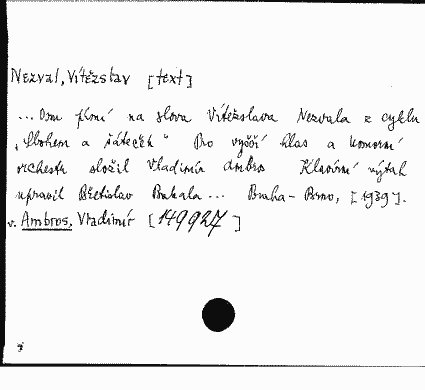 Nezval, Vítězslav [text]
... Osm písní na slova Vítězslava Nezvala z cyklu
„Sbohem a šáteček“ Pro vyšší hlas a komorní
orchestr složil Vladimír Ambros Klavírní výtah
upravil Břetislav Bakala... Praha-Brno, [1939].
v. Ambros, Vladimír [149927]